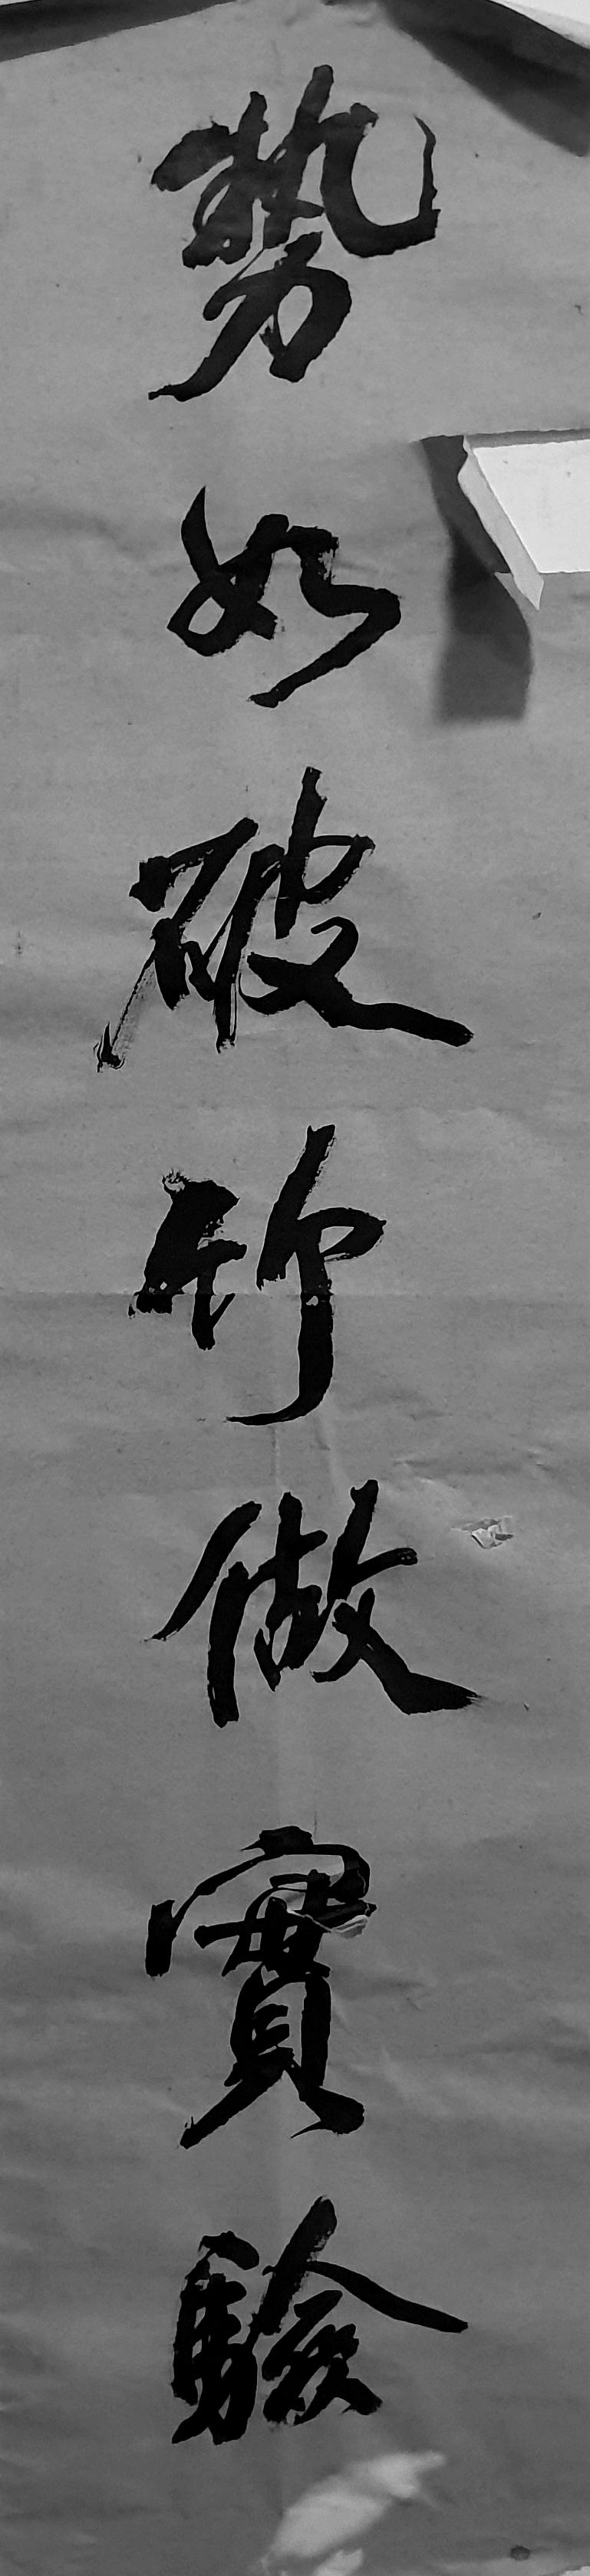 勢如破竹做實驗